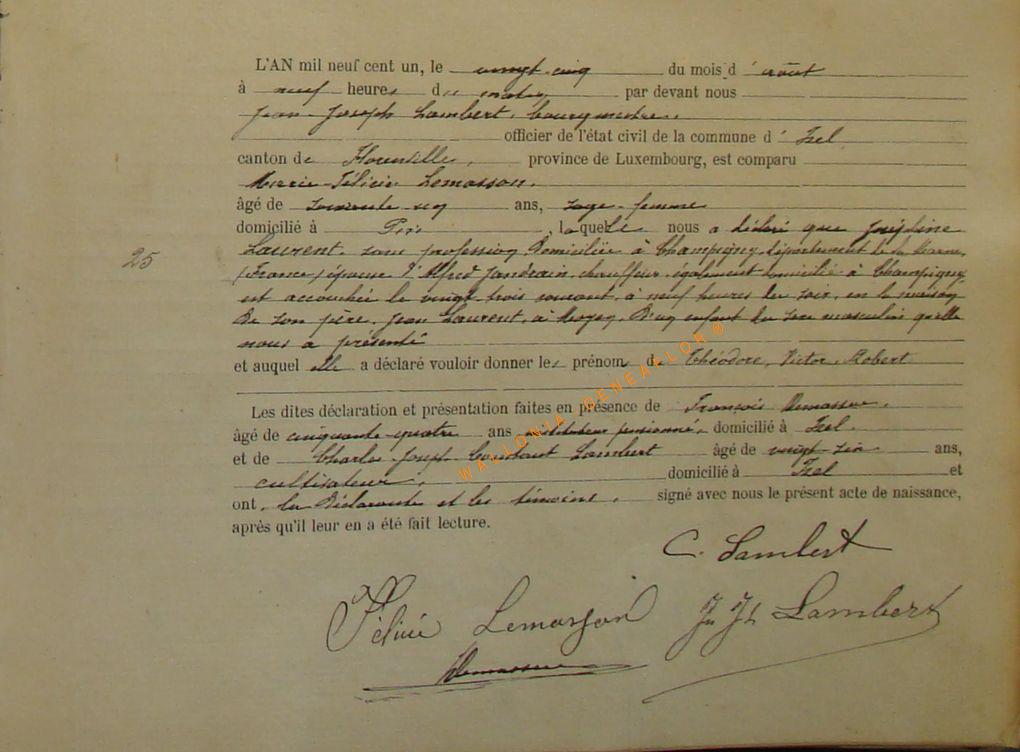 L'AN mil neuf cent un, le vingt cinq du mois d' août
à neuf heures du matin par devant nous
Jean-Joseph Lambert, bourgmestre,
officier de l'état civil de la commune d' Izel
canton de Florenville, province de Luxembourg, est comparu
Marie-Félicie Lemasson,
âgé de ans, sage-femme
domicilié à , laquelle nous a déclaré que Joséphine
25
Laurent, sans profession, domiciliée à Champigny, département de la Marne,
(France) épouse d'Alfred Jandrain, chauffeur, également domicilié à Champigny,
est accouchée le vingt trois courant, à neuf heures du soir, en la maison
de son père, Jean Laurent, à Moyen, d'un enfant du sexe masculin qu'elle
nous a présenté
et auquel elle a déclaré vouloir donner les prénoms de Théodore, Victor, Robert
Les dites déclaration et présentation faites en présence de François
âgé de cinquante-quatre ans instituteur pensionné, domicilié à Izel.
et de Charles-Joseph Constant Lambert âgé de vingt-six ans,
cultivateur, domicilié à Izel et
ont, la déclarante et les témoins, signé avec nous le présent acte de naissance,
après qu'il leur en a été fait lecture.
C. Lambert
Félicie Lemasson Jn Jh Lambert
WALLONIA GENEALLOR®